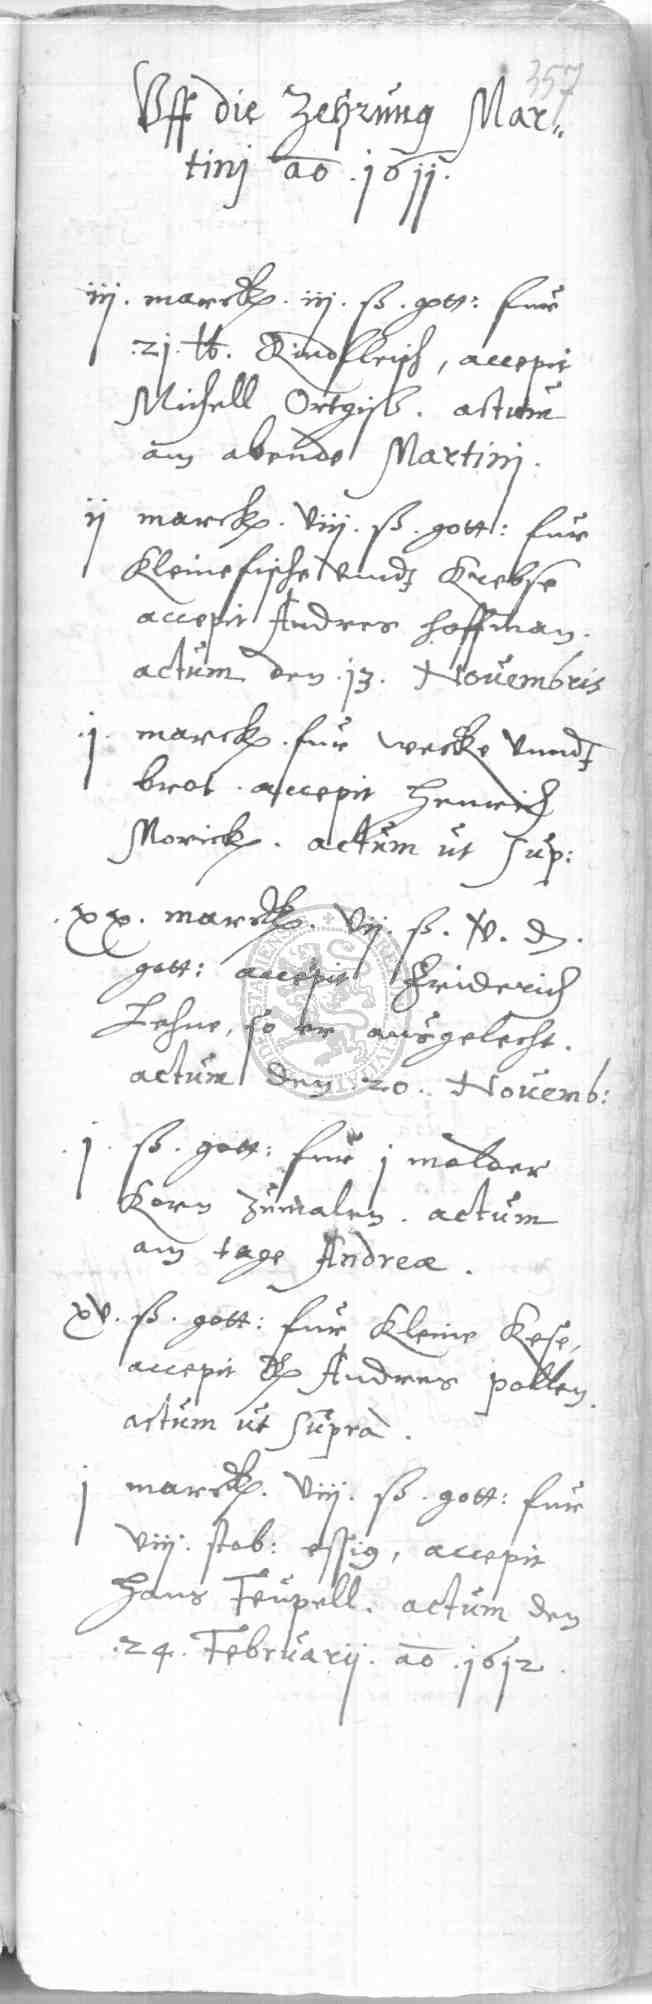 357
Uff die Zehrung Mar„
tinj ao .1611.
iij. marck. iij. ß. gott: fur
.21. lb. Rindfleisch, accepit
Michell Ortgiß. actum
am abende Martinj.
ij marck. viij. ß. gott: fur
Kleinefische undt Krebse
accepit Andres Hoffman.
actum den .13. Novembris
.j. marck. fur wecke unndt
brot. accepit Henrich
Morick. actum ut sup:
.xx. marck. vij. ß. v. d.
gott: accepit Friderich
Lehne, so er ausgelecht.
actum den .20. Novemb:
.j. ß. gott: fur j malder
Korn zumalen. actum
am tage Andreæ.
xv. ß. gott: fur Kleine Kese,
accepit Andres pollen.
actum ut supra.
j marck. viij. ß. gott: fur
viij. stob: essig, accepit
Hans Teupell. actum den
.24. Februarij. ao .1612.